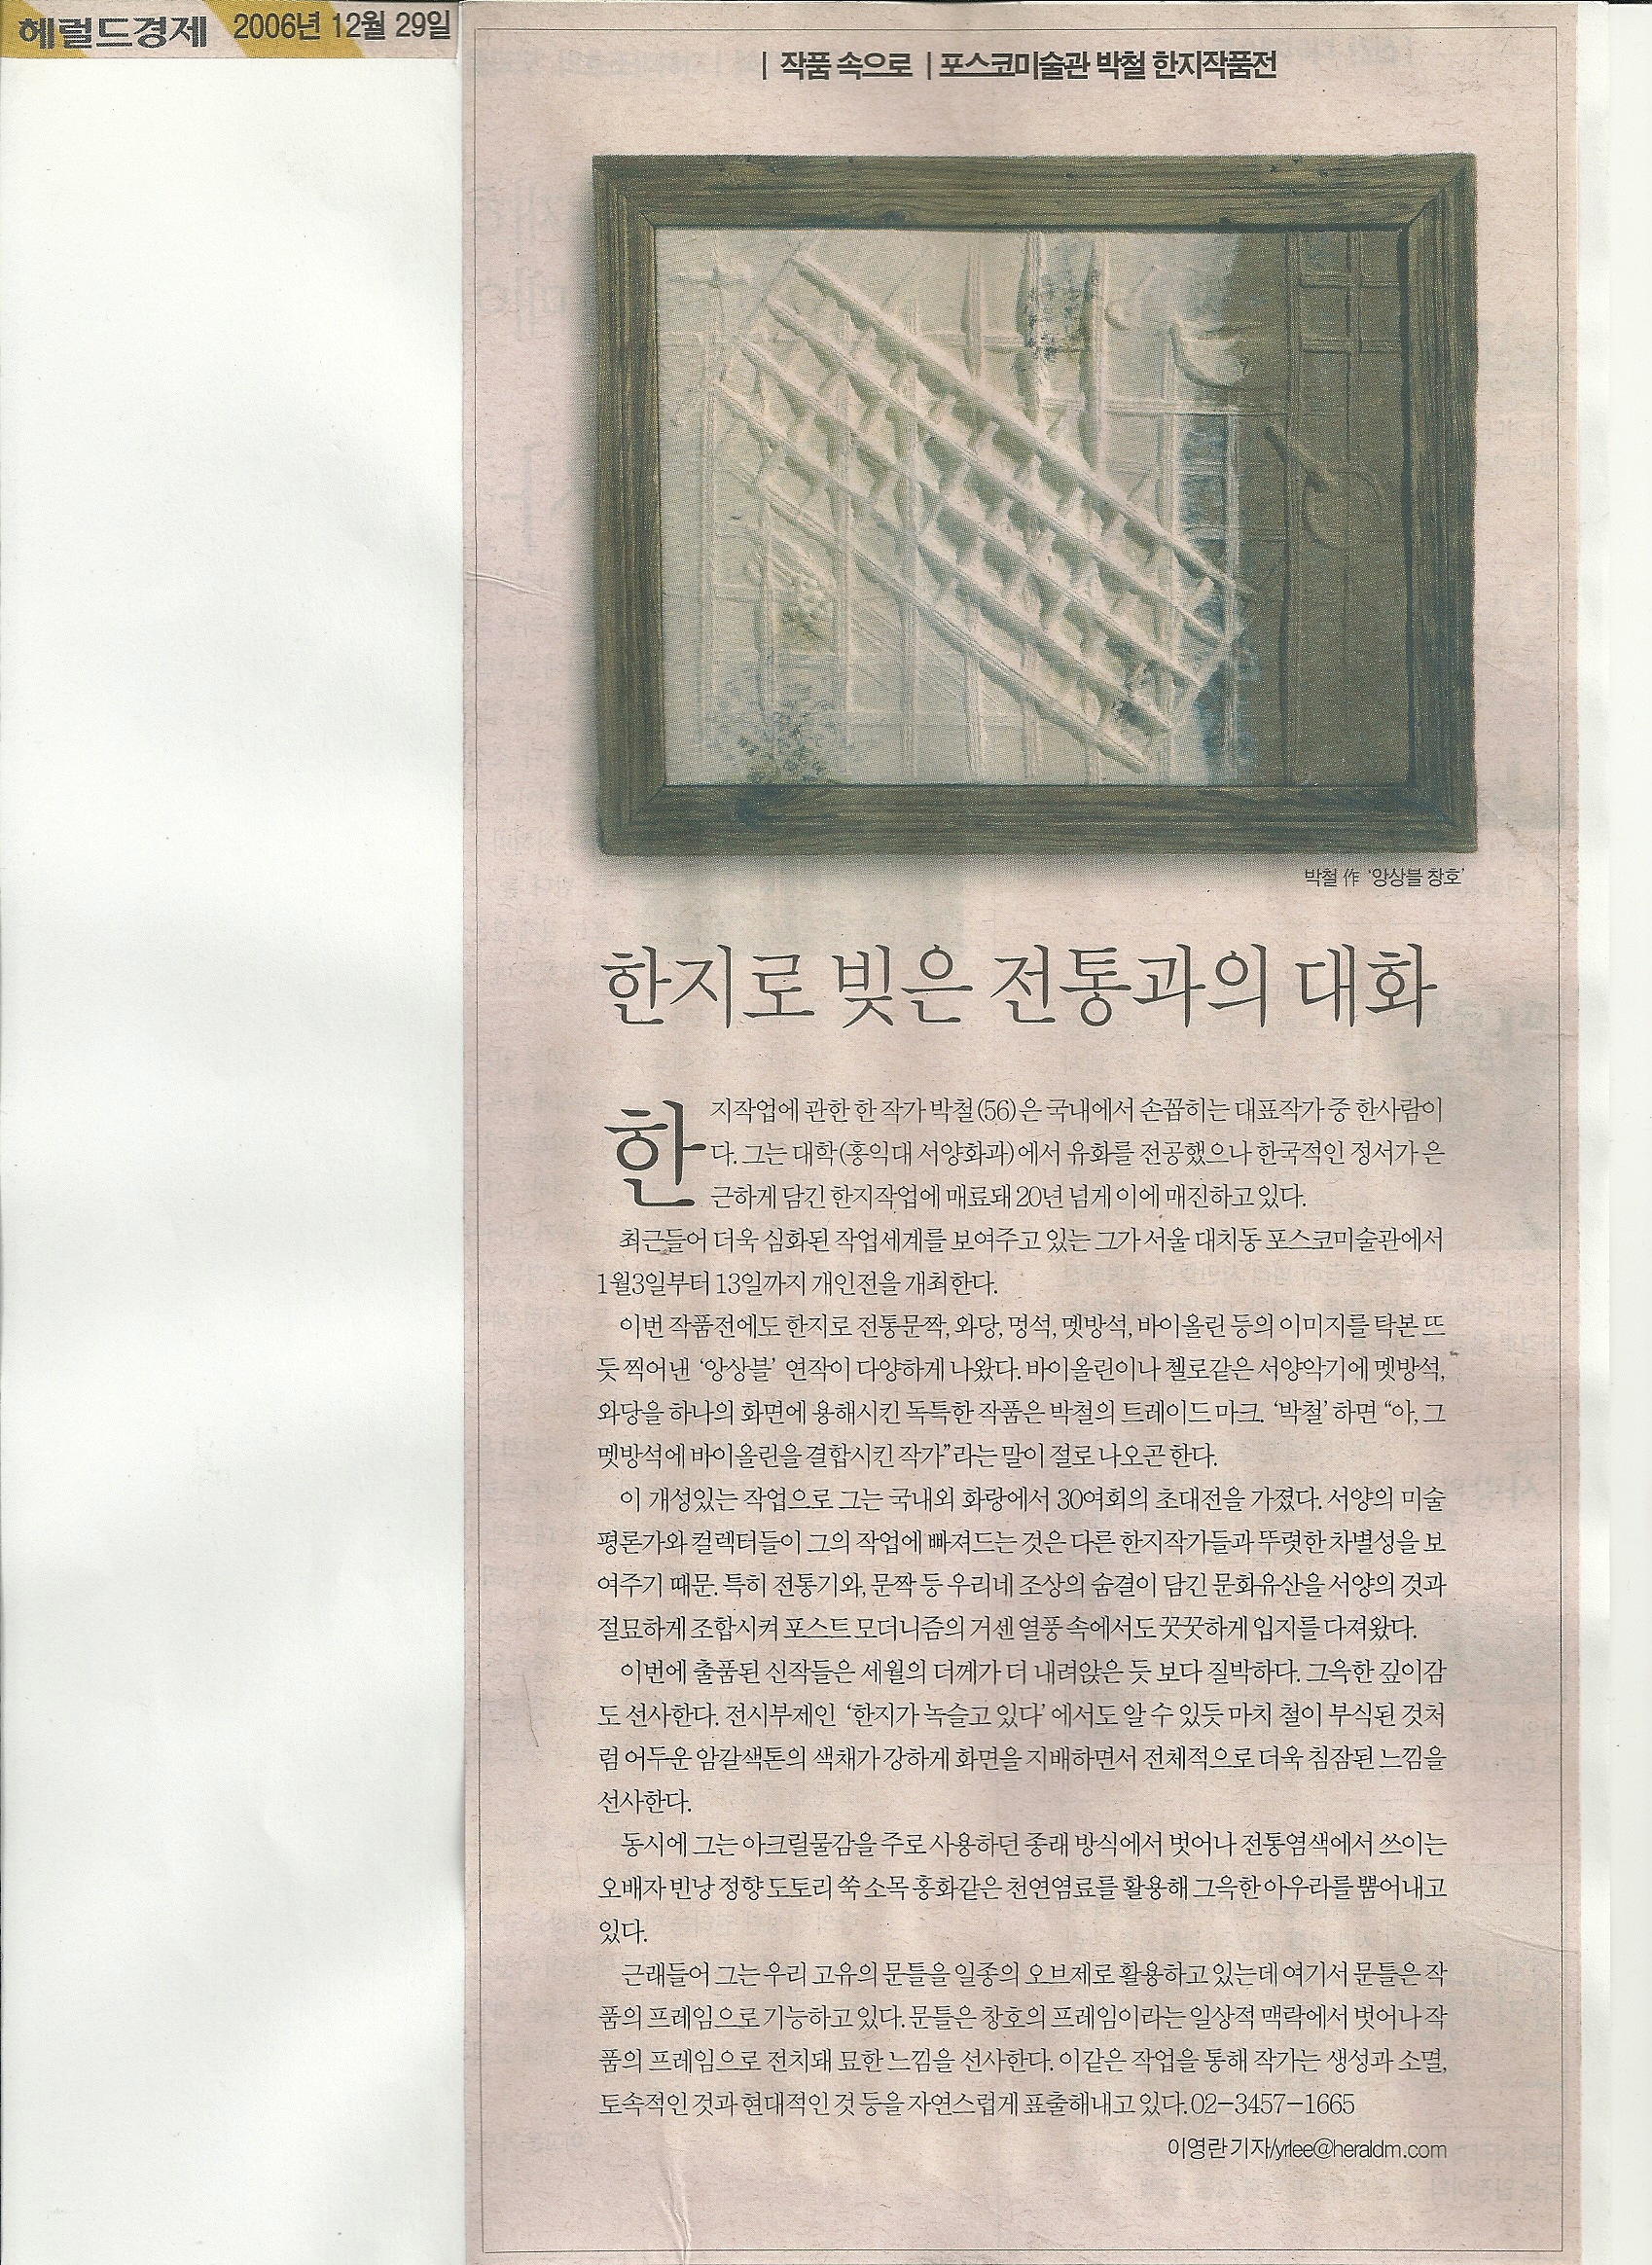 헤럴드경제 2006년 12월 29일
| 작품 속으로 | 포스코미술관 박철 한지작품전
박철 作 ‘앙상블 창호’
한지로 빚은 전통과의 대화
한지작업에 관한 한 작가 박철(56)은 국내에서 손꼽히는 대표작가 중 한사람이
다. 그는 대학(홍익대 서양화과)에서 유화를 전공했으나 한국적인 정서가 은
근하게 담긴 한지작업에 매료돼 20년 넘게 이에 매진하고 있다.
최근들어 더욱 심화된 작업세계를 보여주고 있는 그가 서울 대치동 포스코미술관에서
1월3일부터 13일까지 개인전을 개최한다.
이번 작품전에도 한지로 전통문짝, 와당, 멍석, 멧방석, 바이올린 등의 이미지를 탁본 뜨
듯 찍어낸 ‘앙상블’ 연작이 다양하게 나왔다. 바이올린이나 첼로같은 서양악기에 멧방석,
와당을 하나의 화면에 용해시킨 독특한 작품은 박철의 트레이드 마크. ‘박철’ 하면 “아, 그
멧방석에 바이올린을 결합시킨 작가”라는 말이 절로 나오곤 한다.
이 개성있는 작업으로 그는 국내외 화랑에서 30여회의 초대전을 가졌다. 서양의 미술
평론가와 컬렉터들이 그의 작업에 빠져드는 것은 다른 한지작가들과 뚜렷한 차별성을 보
여주기 때문. 특히 전통기와, 문짝 등 우리네 조상의 숨결이 담긴 문화유산을 서양의 것과
절묘하게 조합시켜 포스트 모더니즘의 거센 열풍 속에서도 꿋꿋하게 입지를 다져왔다.
이번에 출품된 신작들은 세월의 더께가 더 내려앉은 듯 보다 질박하다. 그윽한 깊이감
도 선사한다. 전시부제인 ‘한지가 녹슬고 있다’ 에서도 알 수 있듯 마치 철이 부식된 것처
럼 어두운 암갈색톤의 색채가 강하게 화면을 지배하면서 전체적으로 더욱 침잠된 느낌을
선사한다.
동시에 그는 아크릴물감을 주로 사용하던 종래 방식에서 벗어나 전통염색에서 쓰이는
오배자 빈낭 정향 도토리 쑥 소목 홍화같은 천연염료를 활용해 그윽한 아우라를 뿜어내고
있다.
근래들어 그는 우리 고유의 문틀을 일종의 오브제로 활용하고 있는데 여기서 문틀은 작
품의 프레임으로 기능하고 있다. 문틀은 창호의 프레임이라는 일상적 맥락에서 벗어나 작
품의 프레임으로 전치돼 묘한 느낌을 선사한다. 이같은 작업을 통해 작가는 생성과 소멸,
토속적인 것과 현대적인 것 등을 자연스럽게 표출해내고 있다. 02-3457-1665
이영란 기자/yrlee@heraldm.com